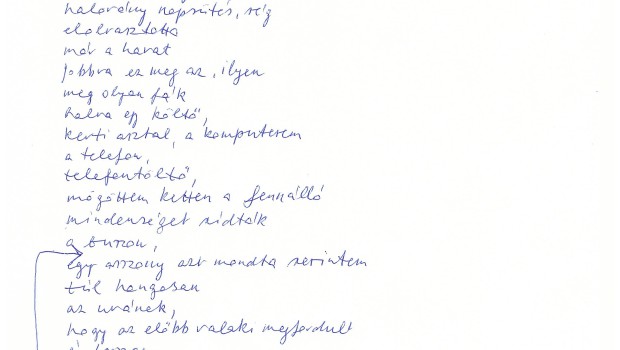 halovány napsütés, rég
elolvasztotta
már a havat
jobbra ez meg az, ilyen
meg olyan fák
balra egy költő,
kerti asztal, a komputerem
a telefon,
telefontöltő,
mögöttem ketten a fennálló
mindenséget szidták
a buszon,
egy asszony azt mondta szerintem
túl hangosan
az urának,
hogy az előbb valaki megfordult